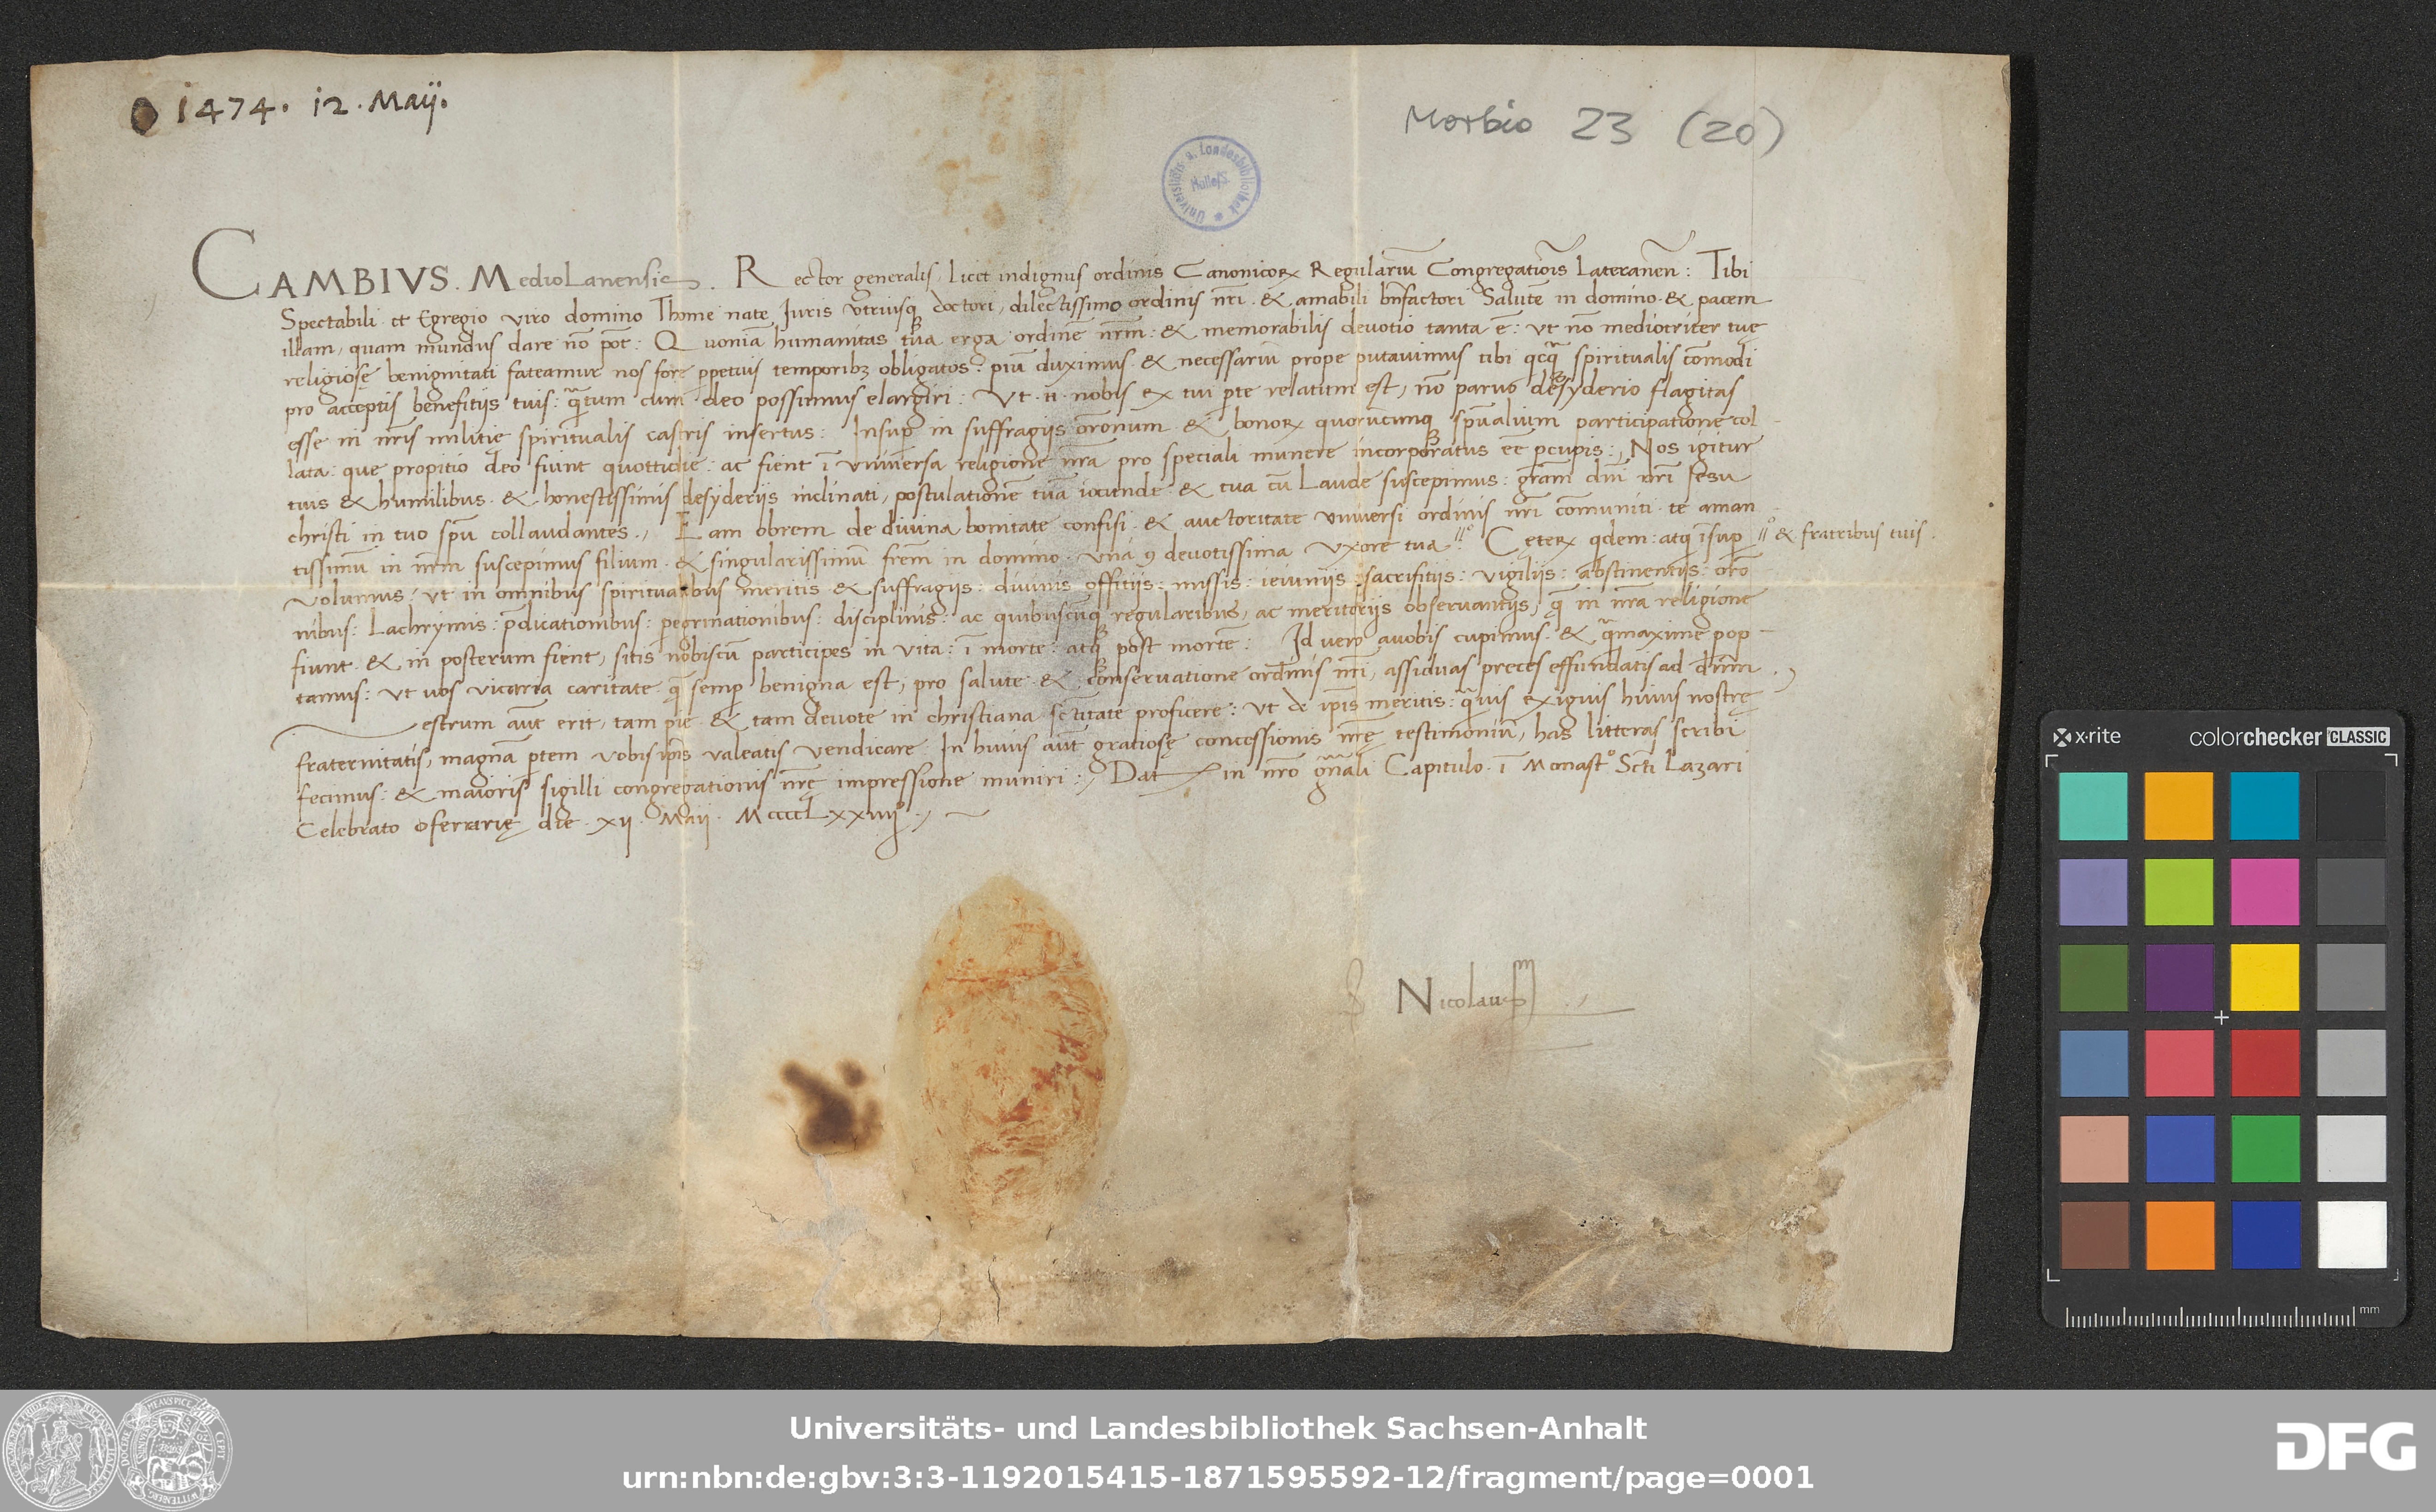 1474. 12. Maij.
Morbio 23 (20)
Universitäts- u. Landesbibliothek Halle/S.
CAMBIVS. MedioLanensis. Rector generalis, Licet indignus ordinis Canonicorꝝ Regulariū Congregatiōis Lateranēn: Tibi
Spectabili et Egregio viro domino Thome nate Juris vtriusqꝫ doctori, dilectissimo ordinis nr̄i & amabili bn̄factori Salutē in domino & pacem
illam, quam mundus dare nō pōt: Quoniā humanitas tua erga ordinē nr̄m: & memorabilis deuotio tanta ē: vt nō mediocriter tuę
religiosę benignitati fateamur nos fore ꝑpetuis temporibꝫ obligatos: piū duximus & necessariū prope putauimus tibi qcq̄ spiritualis cōmodi
pro acceptis benefitijs tuis: q̄tum cum deo possumus elargiri: Vt n nobis ex tui ꝑte relatum est, nō paruo desyderio flagitas
esse in nr̄is militię spiritualis castris insertus: Insuꝑ in suffragijs orōnum & bonorꝝ quorūcunqꝫ spūalium participatione col-
lata: que propitio deo fiunt quottidie: ac fient ī vniuersa religione nr̄a pro speciali munere incorporatus eē ꝑcupis: Nos igitur
tuis & humilibus & honestissimis desyderijs inclinati, postulationē tuā iocunde & tua cū Laude suscepimus: grām dn̄i nr̄i Jesu
christi in tuo spū collaudantes., Eam obrem de diuina bonitate confisi & auctoritate vniuersi ordinis nr̄i cōmuniti te aman
tissimū in nr̄m suscepimus filium & singularissimū frēm in domino vnā ꝯ deuotissima vxore tua //° Cęterꝝ qdem: atqꝫ īsuꝑ //° & fratribus tuis.
volumus, vt in omnibus spiritualibus meritis & suffragijs: diuinis offitijs: missis: ieiunijs: sacrifitijs: vigilijs: abstinentijs: orō
nibus: Lachrymis: p̄dicationibus: peregrinationibus: disciplinis: ac quibuscūqꝫ regularibus, ac meritorijs obseruantijs, q̄ in nr̄a religione
fiunt & in posterum fient, sitis nobiscū participes in vita: ī morte: atqꝫ post mortē: Id vero auobis cupimus & q̄maxime pop-
tamus: vt uos vicaria caritate q̄ semꝑ benigna est, pro salute & conseruatione ordinis nr̄i, assiduas preces effundatis ad dn̄m.
estrum aūt erit, tam pie & tam deuote in christiana sctitate proficere: vt de ip̄is meritis: q̄uis exiguis huius nostrę
fraternitatis, magnā ꝑtem vobis ip̄is valeatis vendicare. In huius aūt gratiosę concessionis nr̄ę testimoniū, has litteras scribi
fecimus: & maioris sigilli congregationis nr̄ę impressione muniri:, Dat in nr̄o gn̄ali Capitulo ī Monast° Scti Lazari
Celebrato oferrarię die xij Maij MccccLxxiiij°.,
Nicolaus
x·rite colorchecker CLASSIC
mm
Universitäts- und Landesbibliothek Sachsen-Anhalt
urn:nbn:de:gbv:3:3-1192015415-1871595592-12/fragment/page=0001
DFG